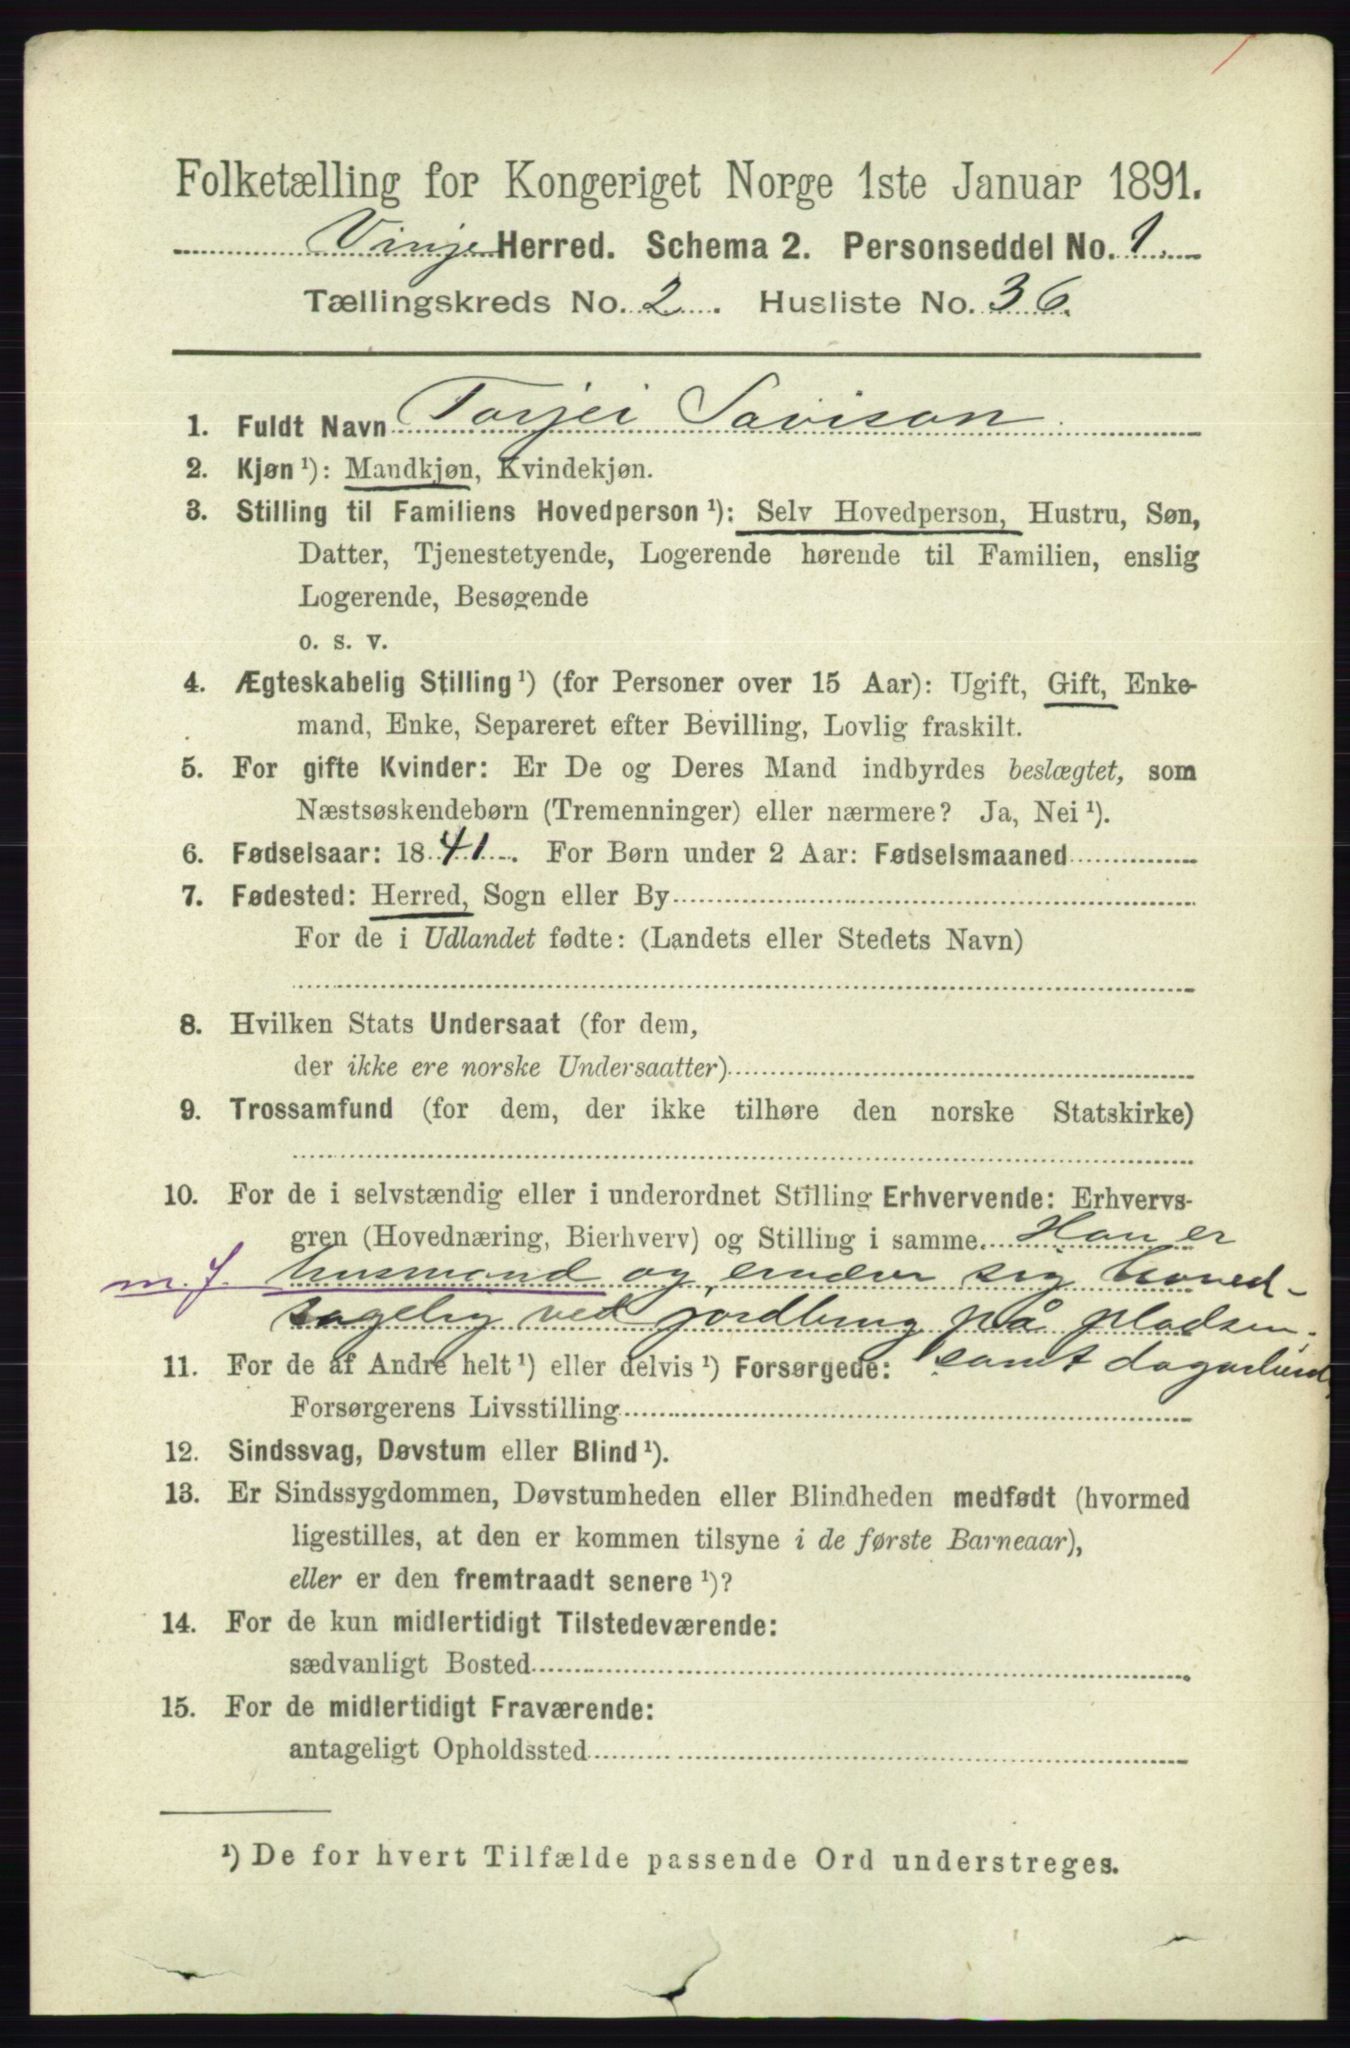 Folketælling for Kongeriget Norge 1ste Januar 1891.
Vinje Herred. Schema 2. Personseddel No. 1.
Tællingskreds No. 2. Husliste No. 36.
1. Fuldt Navn Torjei Savison
2. Kjøn ¹): Mandkjøn, Kvindekjøn.
3. Stilling til Familiens Hovedperson ¹): Selv Hovedperson, Hustru, Søn,
Datter, Tjenestetyende, Logerende hørende til Familien, enslig
Logerende, Besøgende
o. s. v.
4. Ægteskabelig Stilling ¹) (for Personer over 15 Aar): Ugift, Gift, Enke-
mand, Enke, Separeret efter Bevilling, Lovlig fraskilt.
5. For gifte Kvinder: Er De og Deres Mand indbyrdes beslægtet, som
Næstsøskendebørn (Tremenninger) eller nærmere? Ja, Nei ¹).
6. Fødselsaar: 1841. For Børn under 2 Aar: Fødselsmaaned
7. Fødested: Herred, Sogn eller By
For de i Udlandet fødte: (Landets eller Stedets Navn)
8. Hvilken Stats Undersaat (for dem,
der ikke ere norske Undersaatter)
9. Trossamfund (for dem, der ikke tilhøre den norske Statskirke)
10. For de i selvstændig eller i underordnet Stilling Erhvervende: Erhvervs-
gren (Hovednæring, Bierhverv) og Stilling i samme. Han er
m. J. husmand og ernærer sig hoved-
sagelig ved jordbrug på pladsen,
11. For de af Andre helt ¹) eller delvis ¹) Forsørgede: samt dagarbeid
Forsørgerens Livsstilling
12. Sindssvag, Døvstum eller Blind ¹).
13. Er Sindssygdommen, Døvstumheden eller Blindheden medfødt (hvormed
ligestilles, at den er kommen tilsyne i de første Barneaar),
eller er den fremtraadt senere ¹)?
14. For de kun midlertidigt Tilstedeværende:
sædvanligt Bosted
15. For de midlertidigt Fraværende:
antageligt Opholdssted
¹) De for hvert Tilfælde passende Ord understreges.